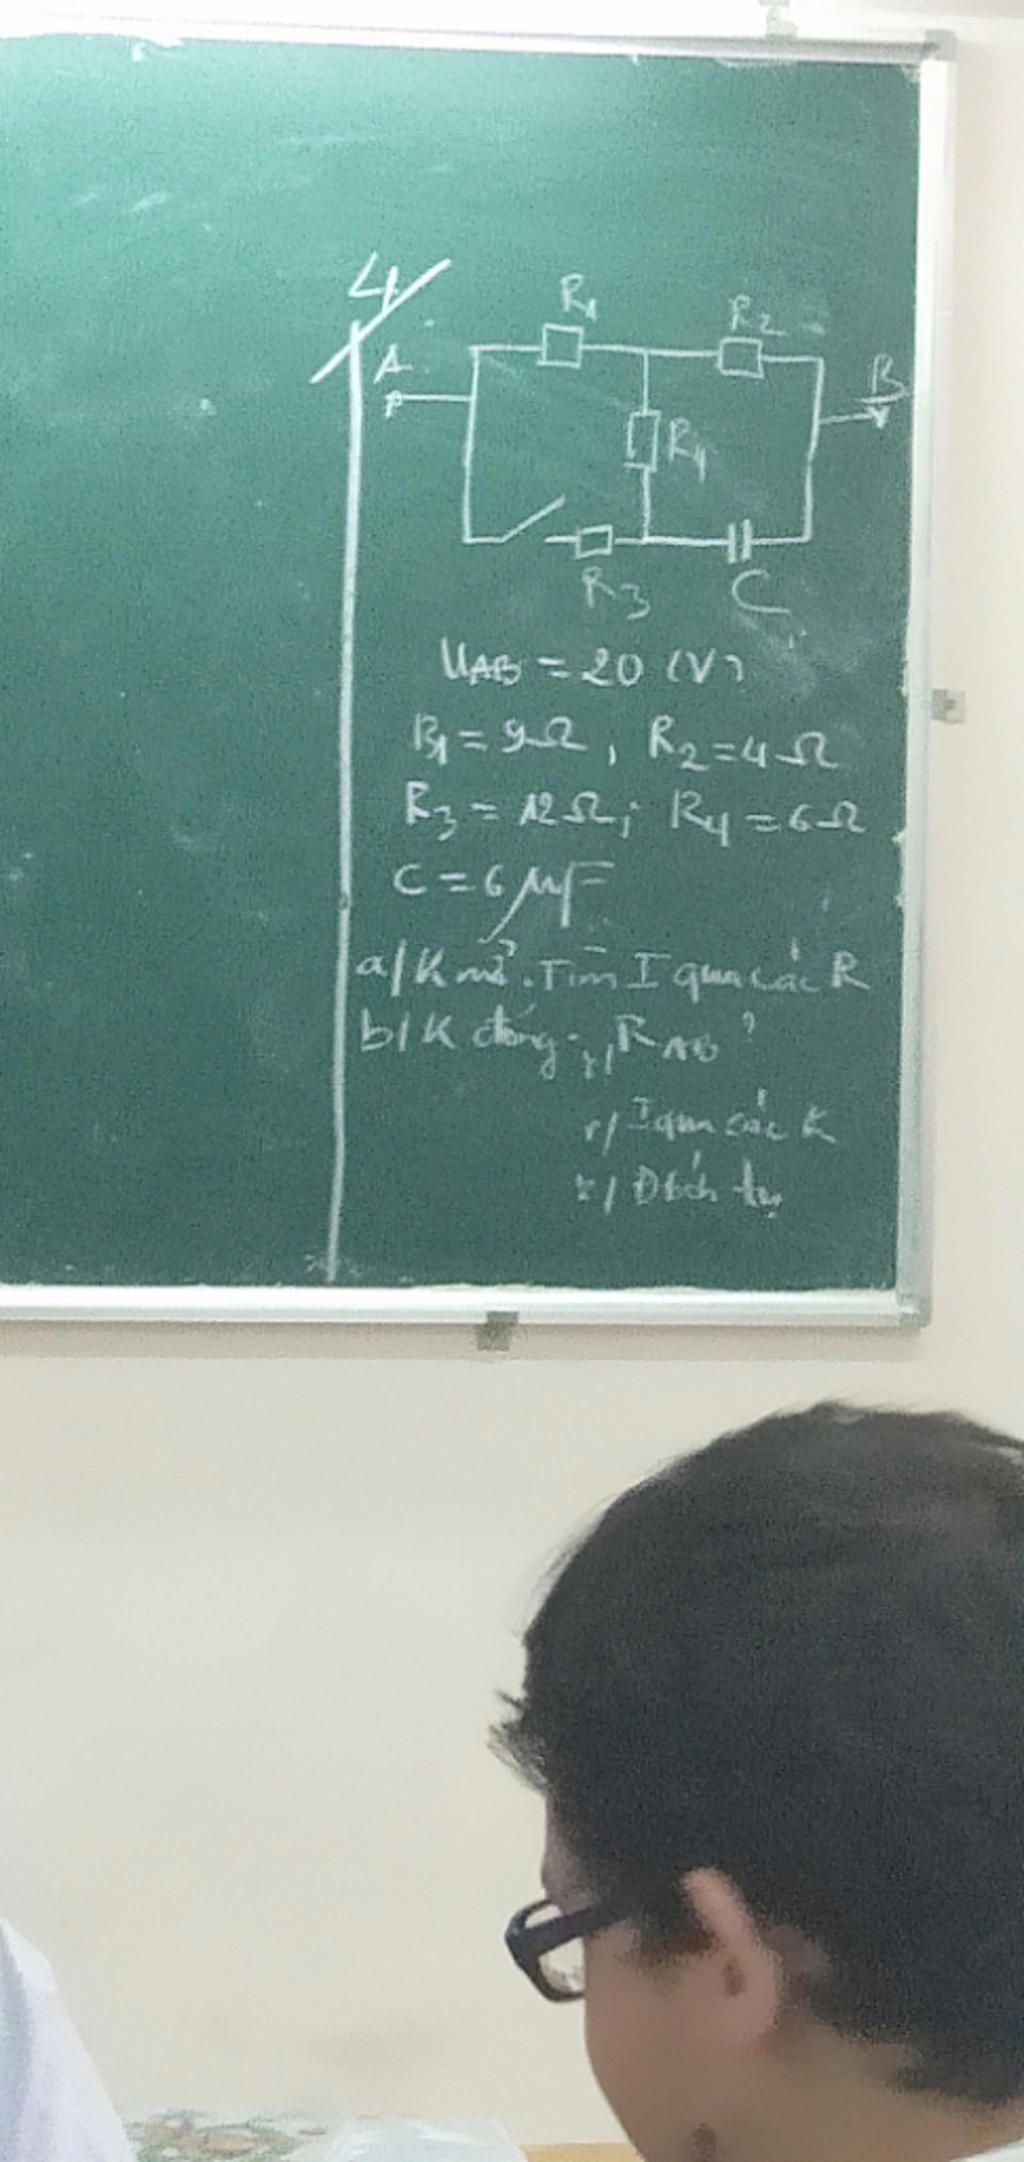 4
R1
R2
A
B
R4
R3
C
UAB = 20 (V)
R1 = 9Ω, R2 = 4Ω
R3 = 12Ω; R4 = 6Ω
C = 6 μF
a/ K mở. Tìm I qua các R
b/ K đóng. RAB?
I qua các R
Đtích tụ